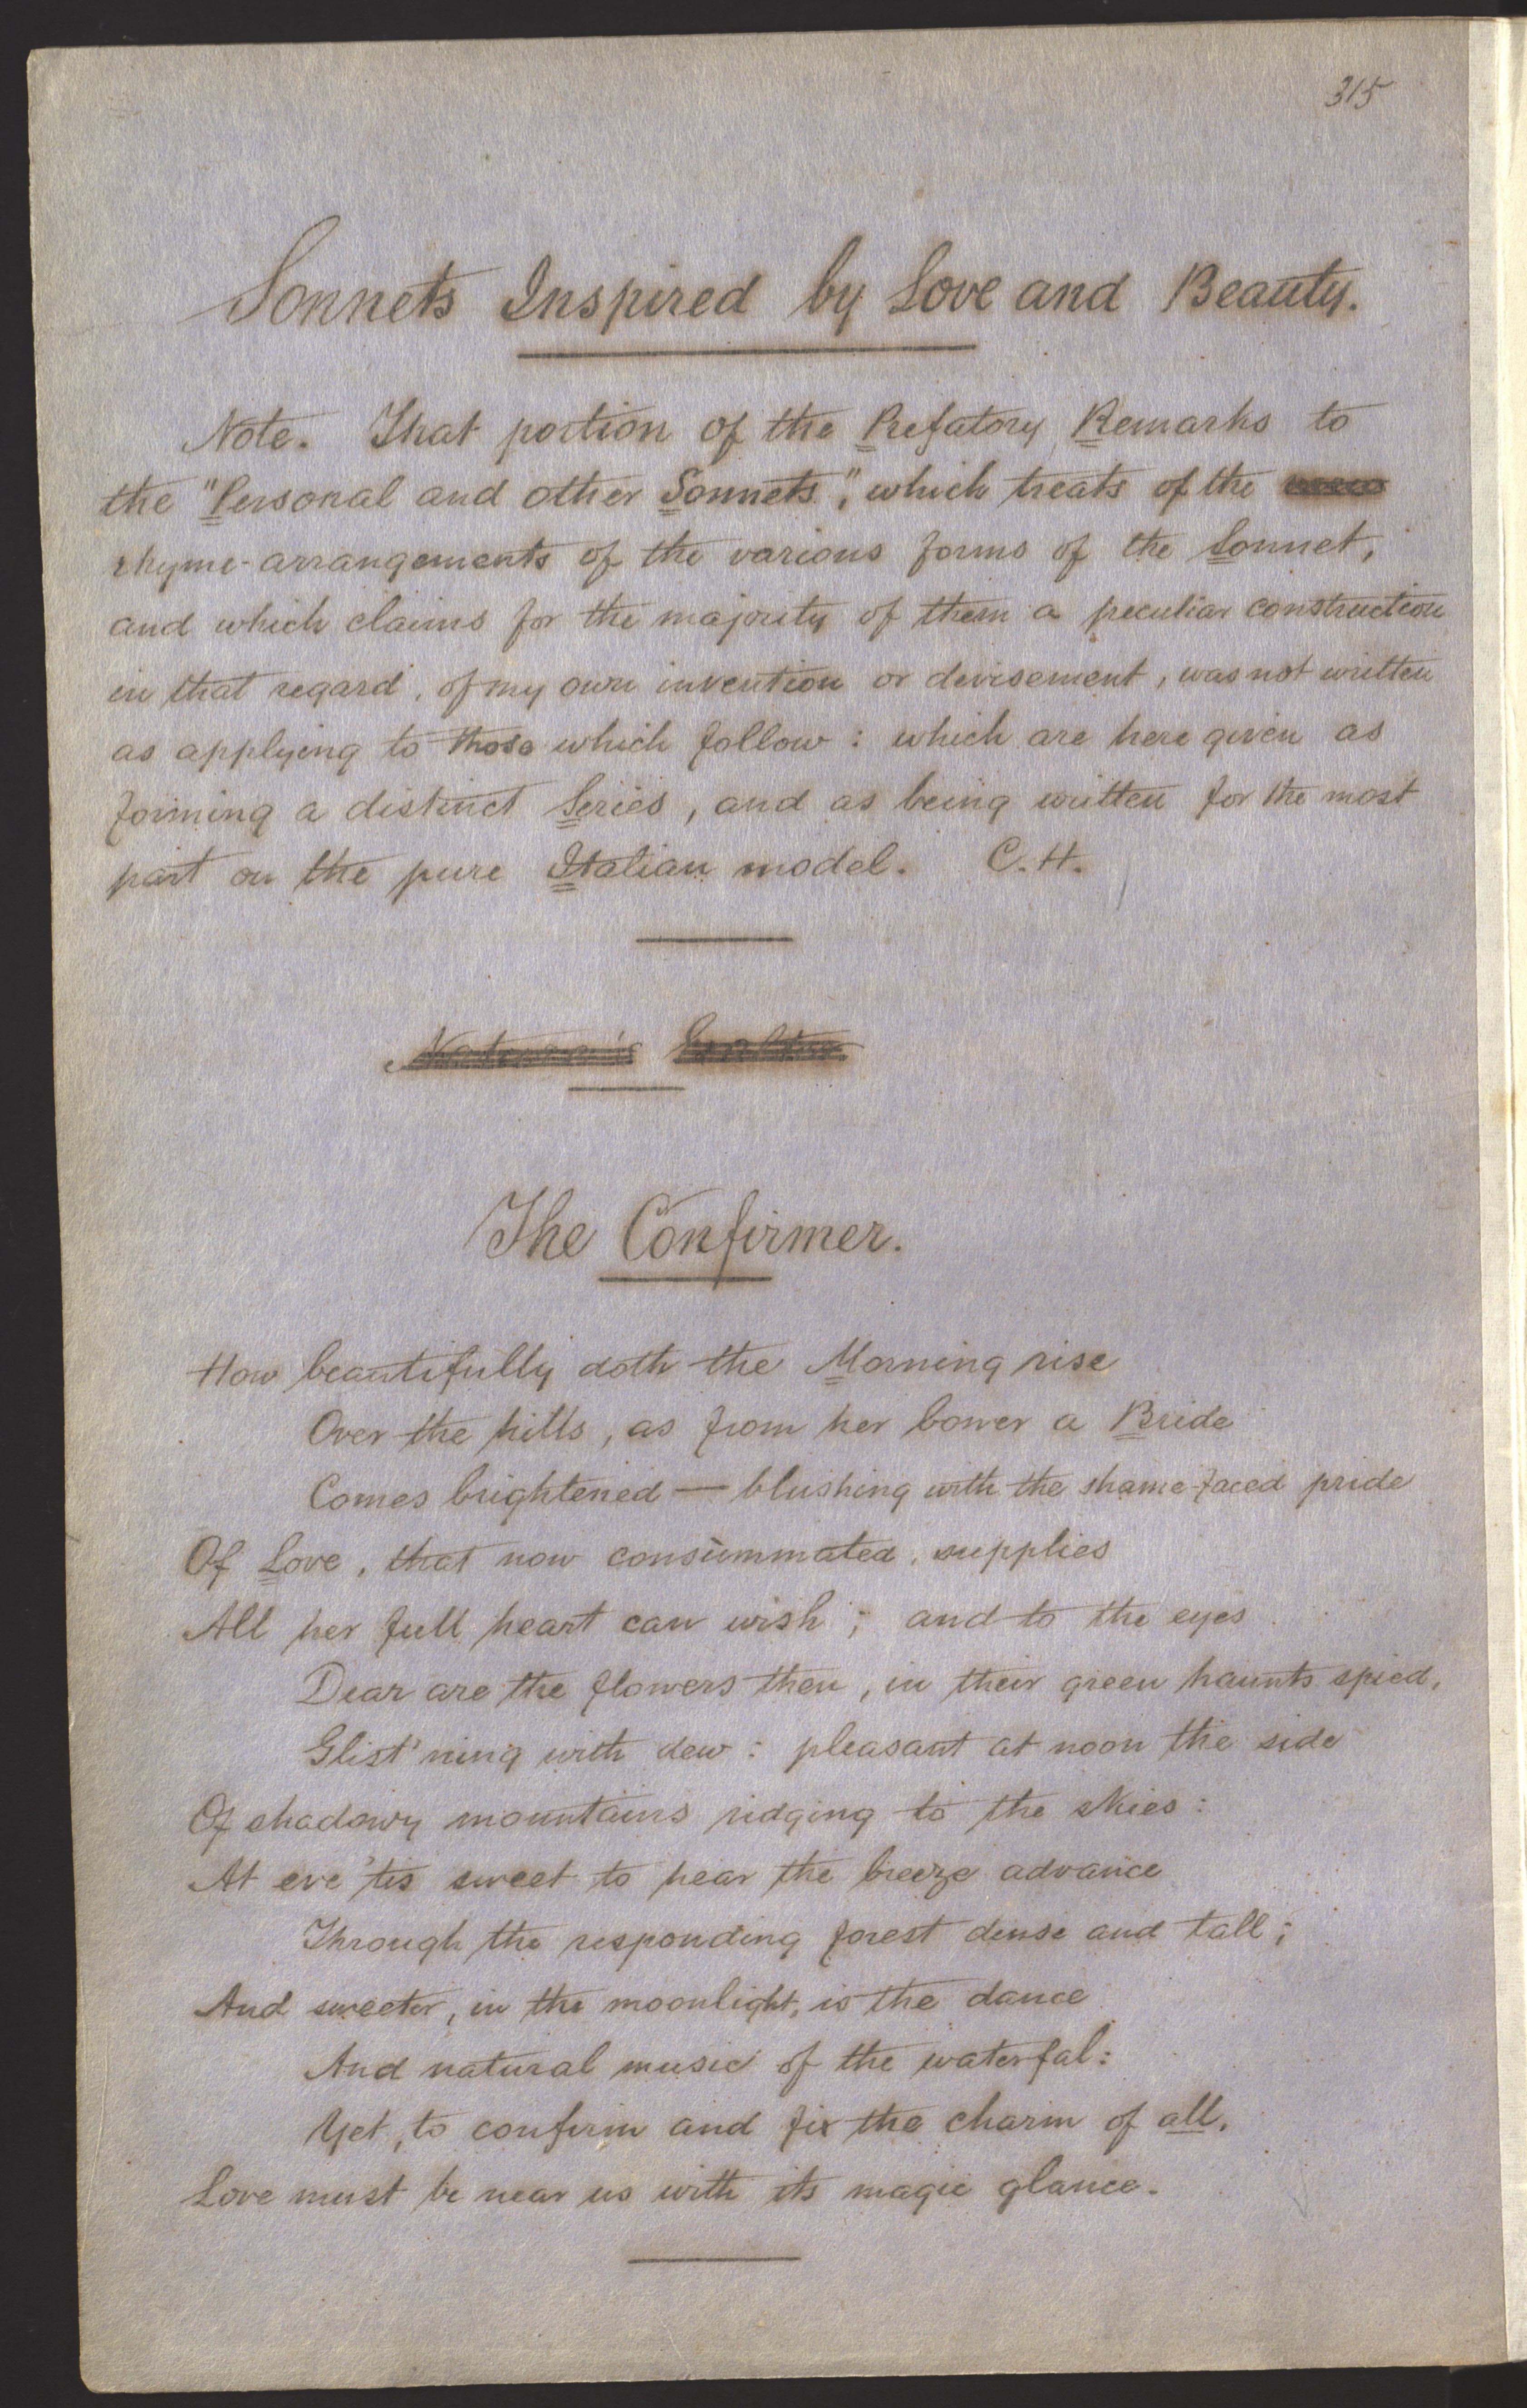 315
Sonnets Inspired by Love and Beauty.
Note. That portion of the Prefatory Remarks to
the "Personal and other Sonnets", which treats of the
rhyme-arrangements of the various forms of the Sonnet,
and which claims for the majority of them a peculiar construction
in that regard, of my own invention or devisement, was not written
as applying to those which follow: which are here given as
forming a distinct Series, and as being written for the most
part on the pure Italian model. C. H.
The Confirmer.
How beautifully doth the Morning rise
Over the hills, as from her bower a Bride
Comes brightened — blushing with the shame-faced pride
Of Love, that now consummated, supplies
All her full heart can wish; and to the eyes
Dear are the flowers then, in their green haunts spied,
Glist'ning with dew: pleasant at noon the side
Of shadowy mountains ridging to the skies:
At eve 'tis sweet to hear the breeze advance
Through the responding forest dense and tall;
And sweeter, in the moonlight, is the dance
And natural music of the waterfal:
Yet, to confirm and fix the charm of all,
Love must be near us with its magic glance.